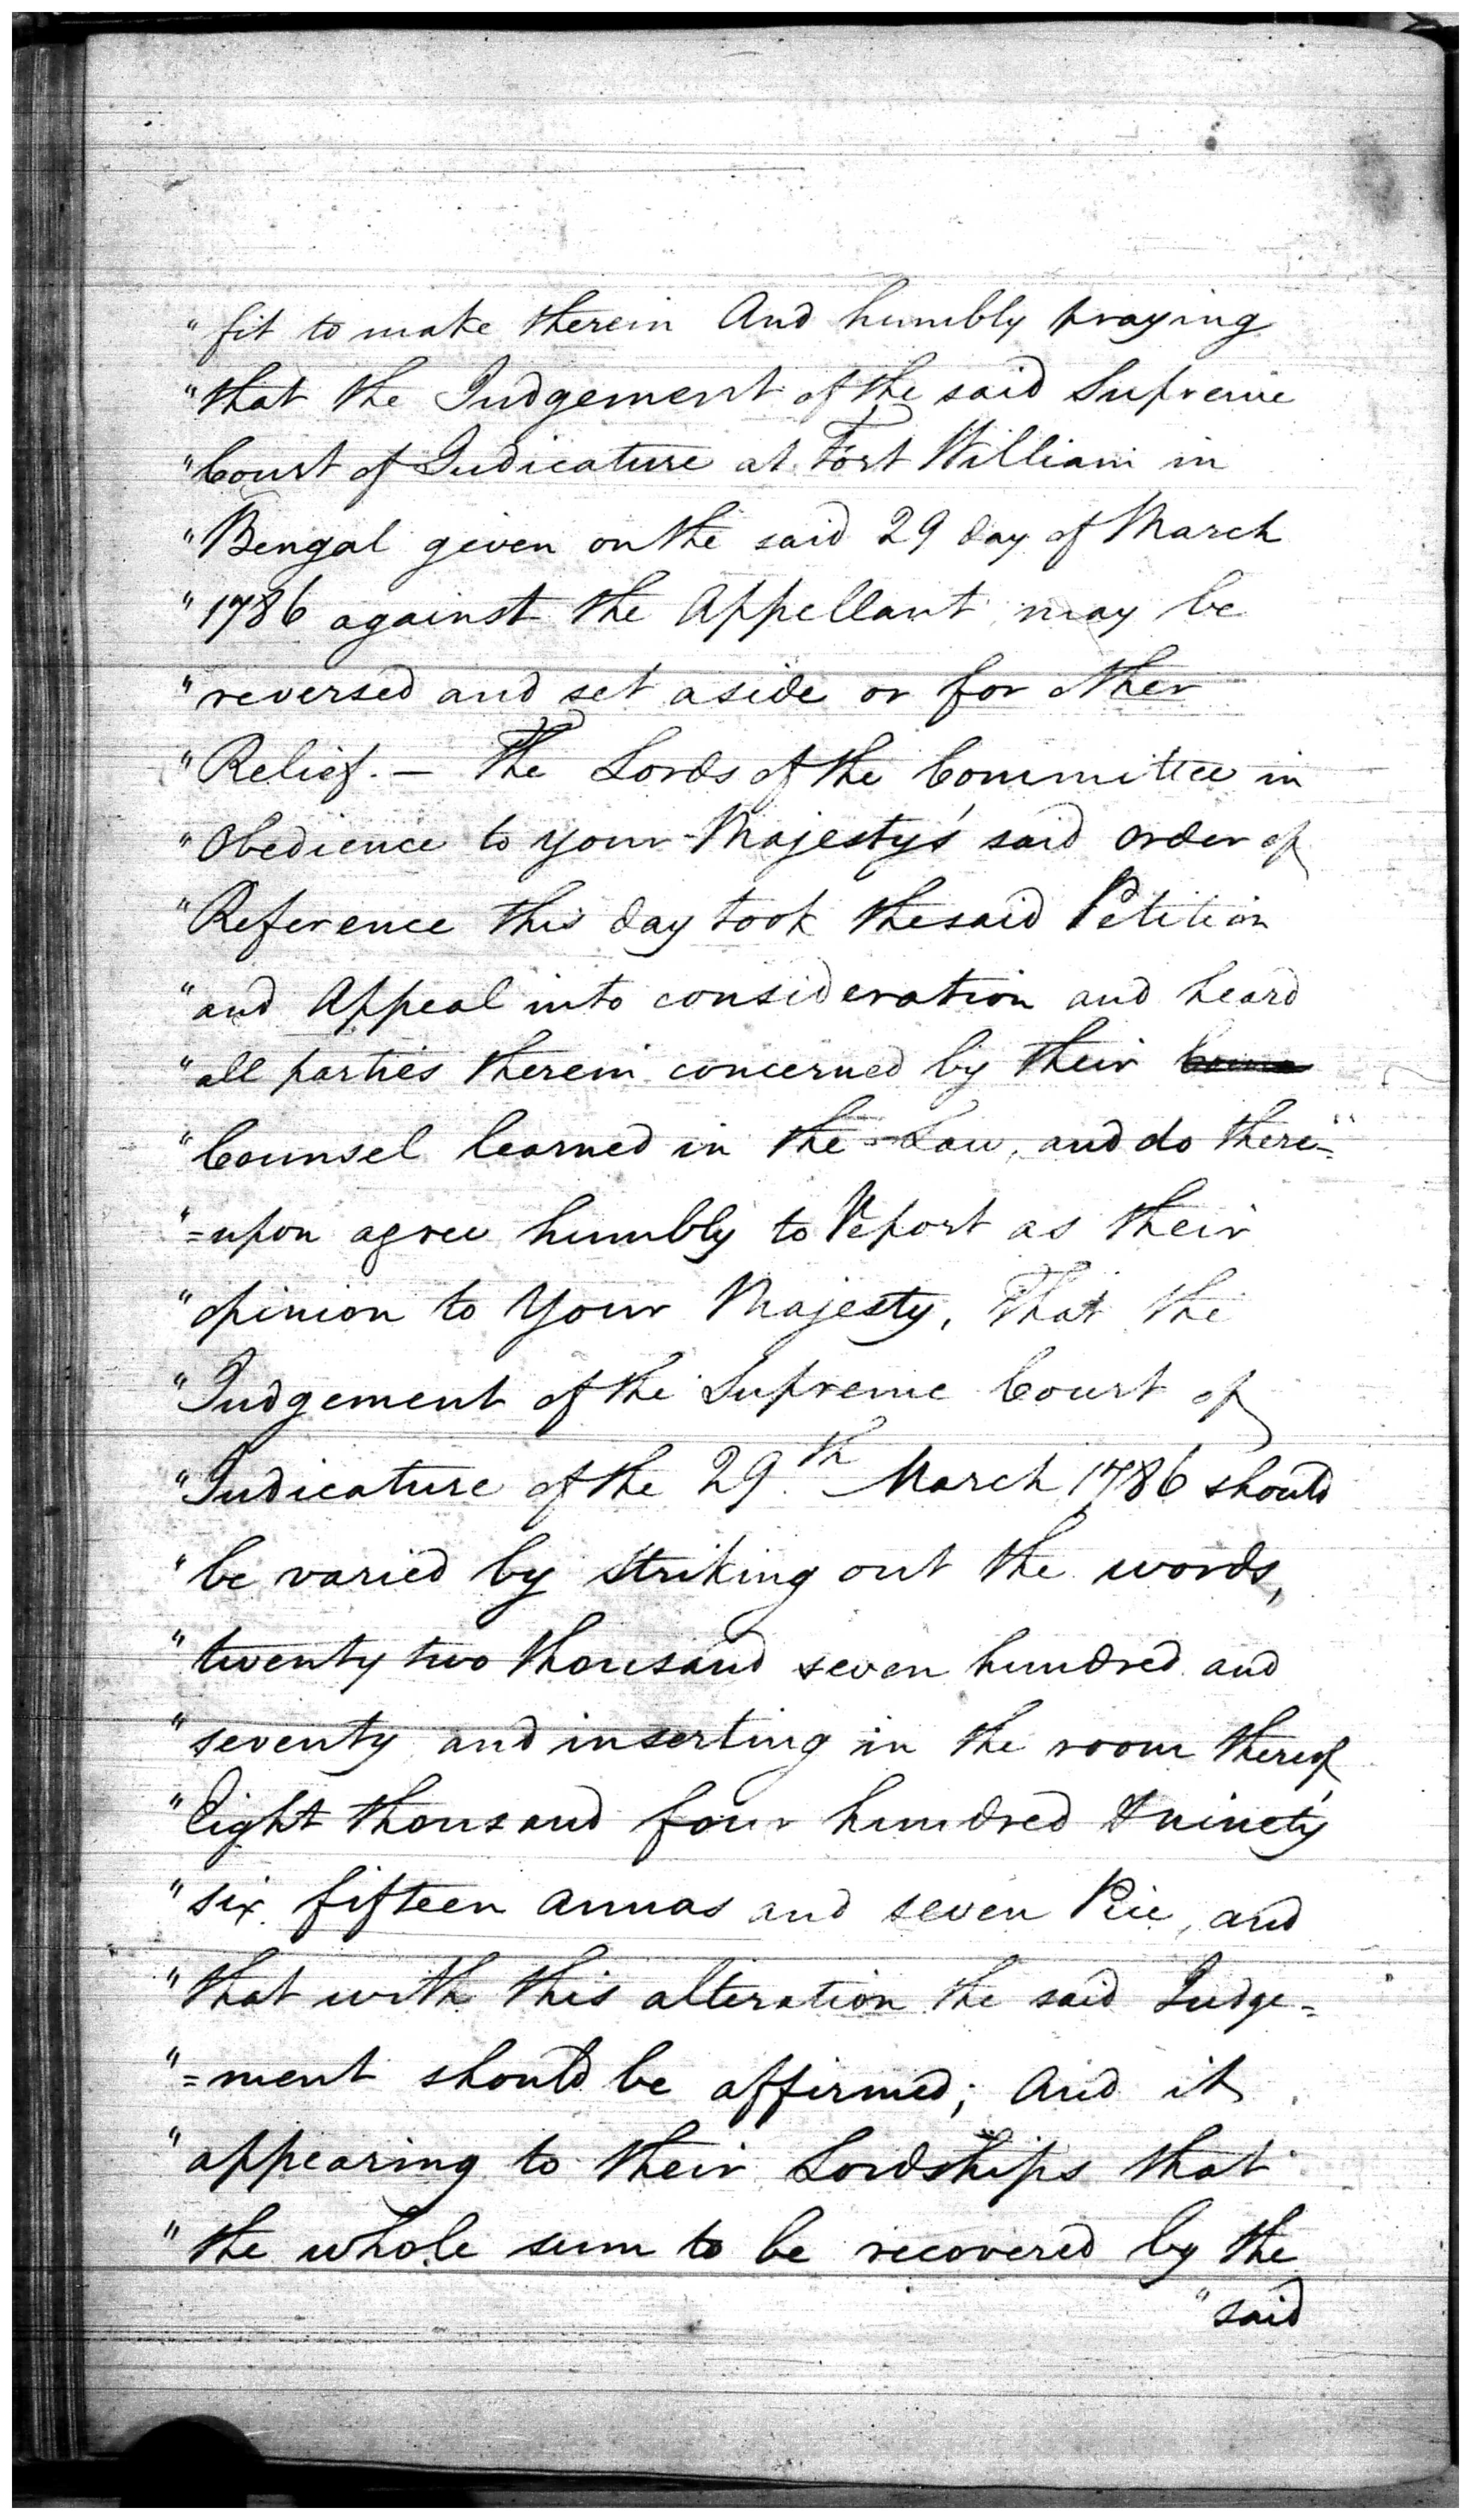 "fit to make therein And humbly praying
"that the Judgement of the said Supreme
"Court of Judicature at Fort William in
"Bengal given on the said 29 day of March
"1786 against the Appellant may be
"reversed and set aside or for other
"Relief. — The Lords of the Committee in
"Obedience to your Majesty's said order of
"Reference this day took the said Petition
"and Appeal into consideration and heard
"all parties therein concerned by their
"Counsel learned in the Law, and do there=
"=upon agree humbly to Report as their
"opinion to Your Majesty, That the
"Judgement of the Supreme Court of
"Judicature of the 29.th March 1786 should
"be varied by striking out the words,
"twenty two thousand seven hundred and
"seventy and inserting in the room thereof
"Eight thousand four hundred & ninety
"six fifteen annas and seven Pie, and
"that with this alteration the said Judge=
"=ment should be affirmed; And it
"appearing to their Lordships that
"the whole sum to be recovered by the
"said